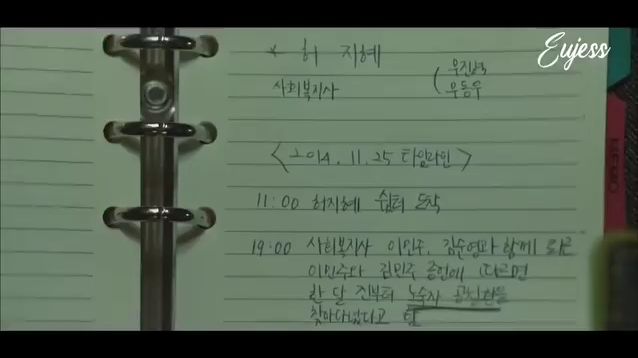 Eujess
* 허 지혜
사회복지사
<2014. 11. 25 타임라인>
11:00 허지혜 쉼터 도착
19:00 사회복지사 이민주, 김순영과 함께
이민주와 김민주 증언에 따르면
한 달 전부터 노숙자
찾아다녔다고 함